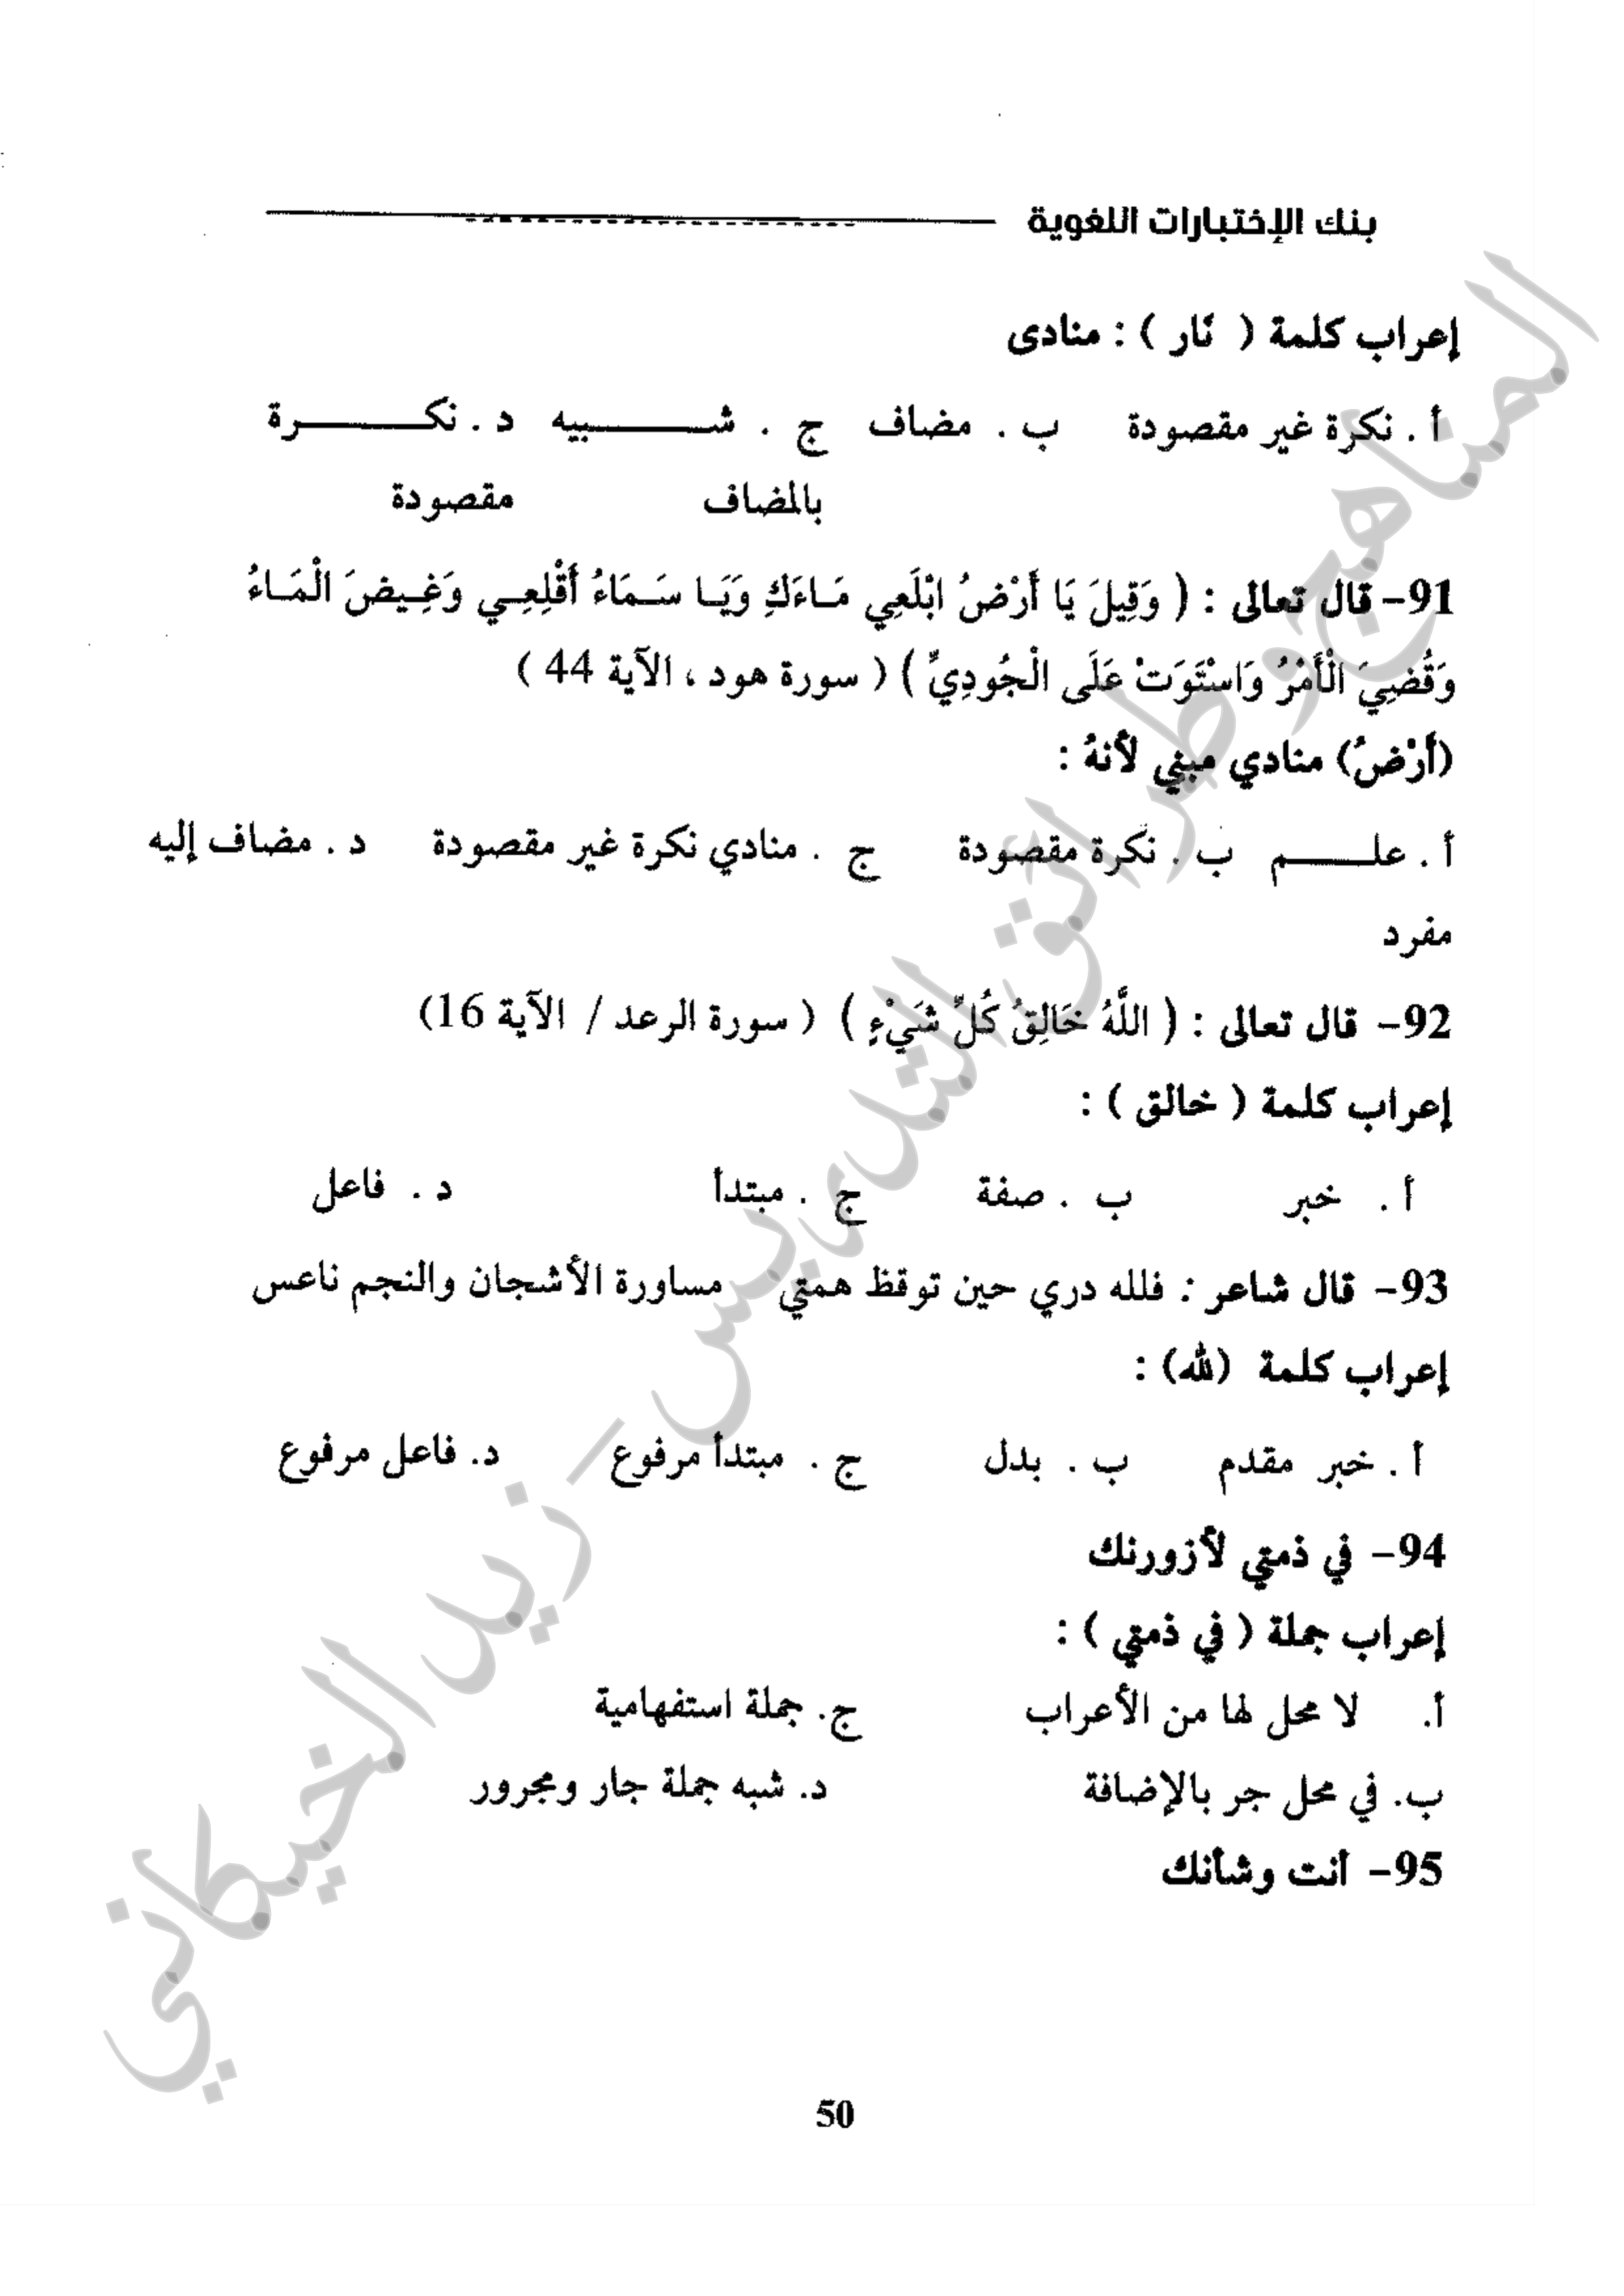 بنك الإختبارات اللغوية
إعراب كلمة ( نَار ) : منادى
أ . نكرة غير مقصودة ب . مضاف ج . شـــــــبيه د . نكـــــــــرة
بالمضاف مقصودة
91- قال تعالى : ( وَقِيلَ يَا أَرْضُ ابْلَعِي مَـاءَكِ وَيَـا سَـمَاءُ أَقْلِعِـي وَغِـيضَ الْمَـاءُ
وَقُضِيَ الْأَمْرُ وَاسْتَوَتْ عَلَى الْجُودِيِّ ) ( سورة هود ، الآية 44 )
(أَرْضُ) منادي مبني لأنهُ :
أ . علـــــم ب . نكرة مقصودة ج . منادي نكرة غير مقصودة د . مضاف إليه
مفرد
92- قال تعالى : ( اللَّهُ خَالِقُ كُلِّ شَيْءٍ ) ( سورة الرعد / الآية 16)
إعراب كلمة ( خالق ) :
أ . خبر ب . صفة ج . مبتدأ د . فاعل
93- قال شاعر : فلله دري حين توقظ همتي مساورة الأشجان والنجم ناعس
إعراب كلمة (لله) :
أ . خبر مقدم ب . بدل ج . مبتدأ مرفوع د. فاعل مرفوع
94- في ذمتي لأزورنك
إعراب جملة ( في ذمتي ) :
أ. لا محل لها من الأعراب ج. جملة استفهامية
ب. في محل جر بالإضافة د. شبه جملة جار ومجرور
95- أنت وشأنك
50
المناهج وطرائق التدريس - زيد الخيكاني